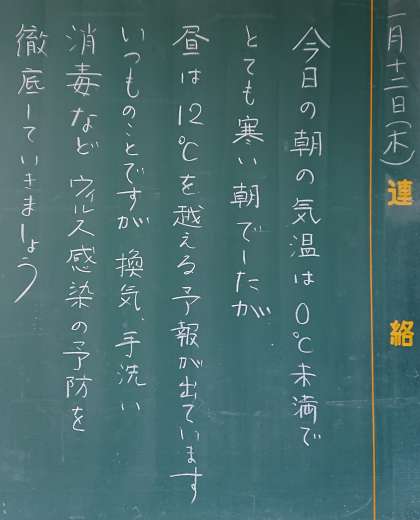 一月十二日(木)
連絡
今日の朝の気温は0℃未満で
とても寒い朝でしたが
昼は12℃を越える予報が出ています
いつものことですが換気、手洗い
消毒など ウィルス感染の予防を
徹底していきましょう